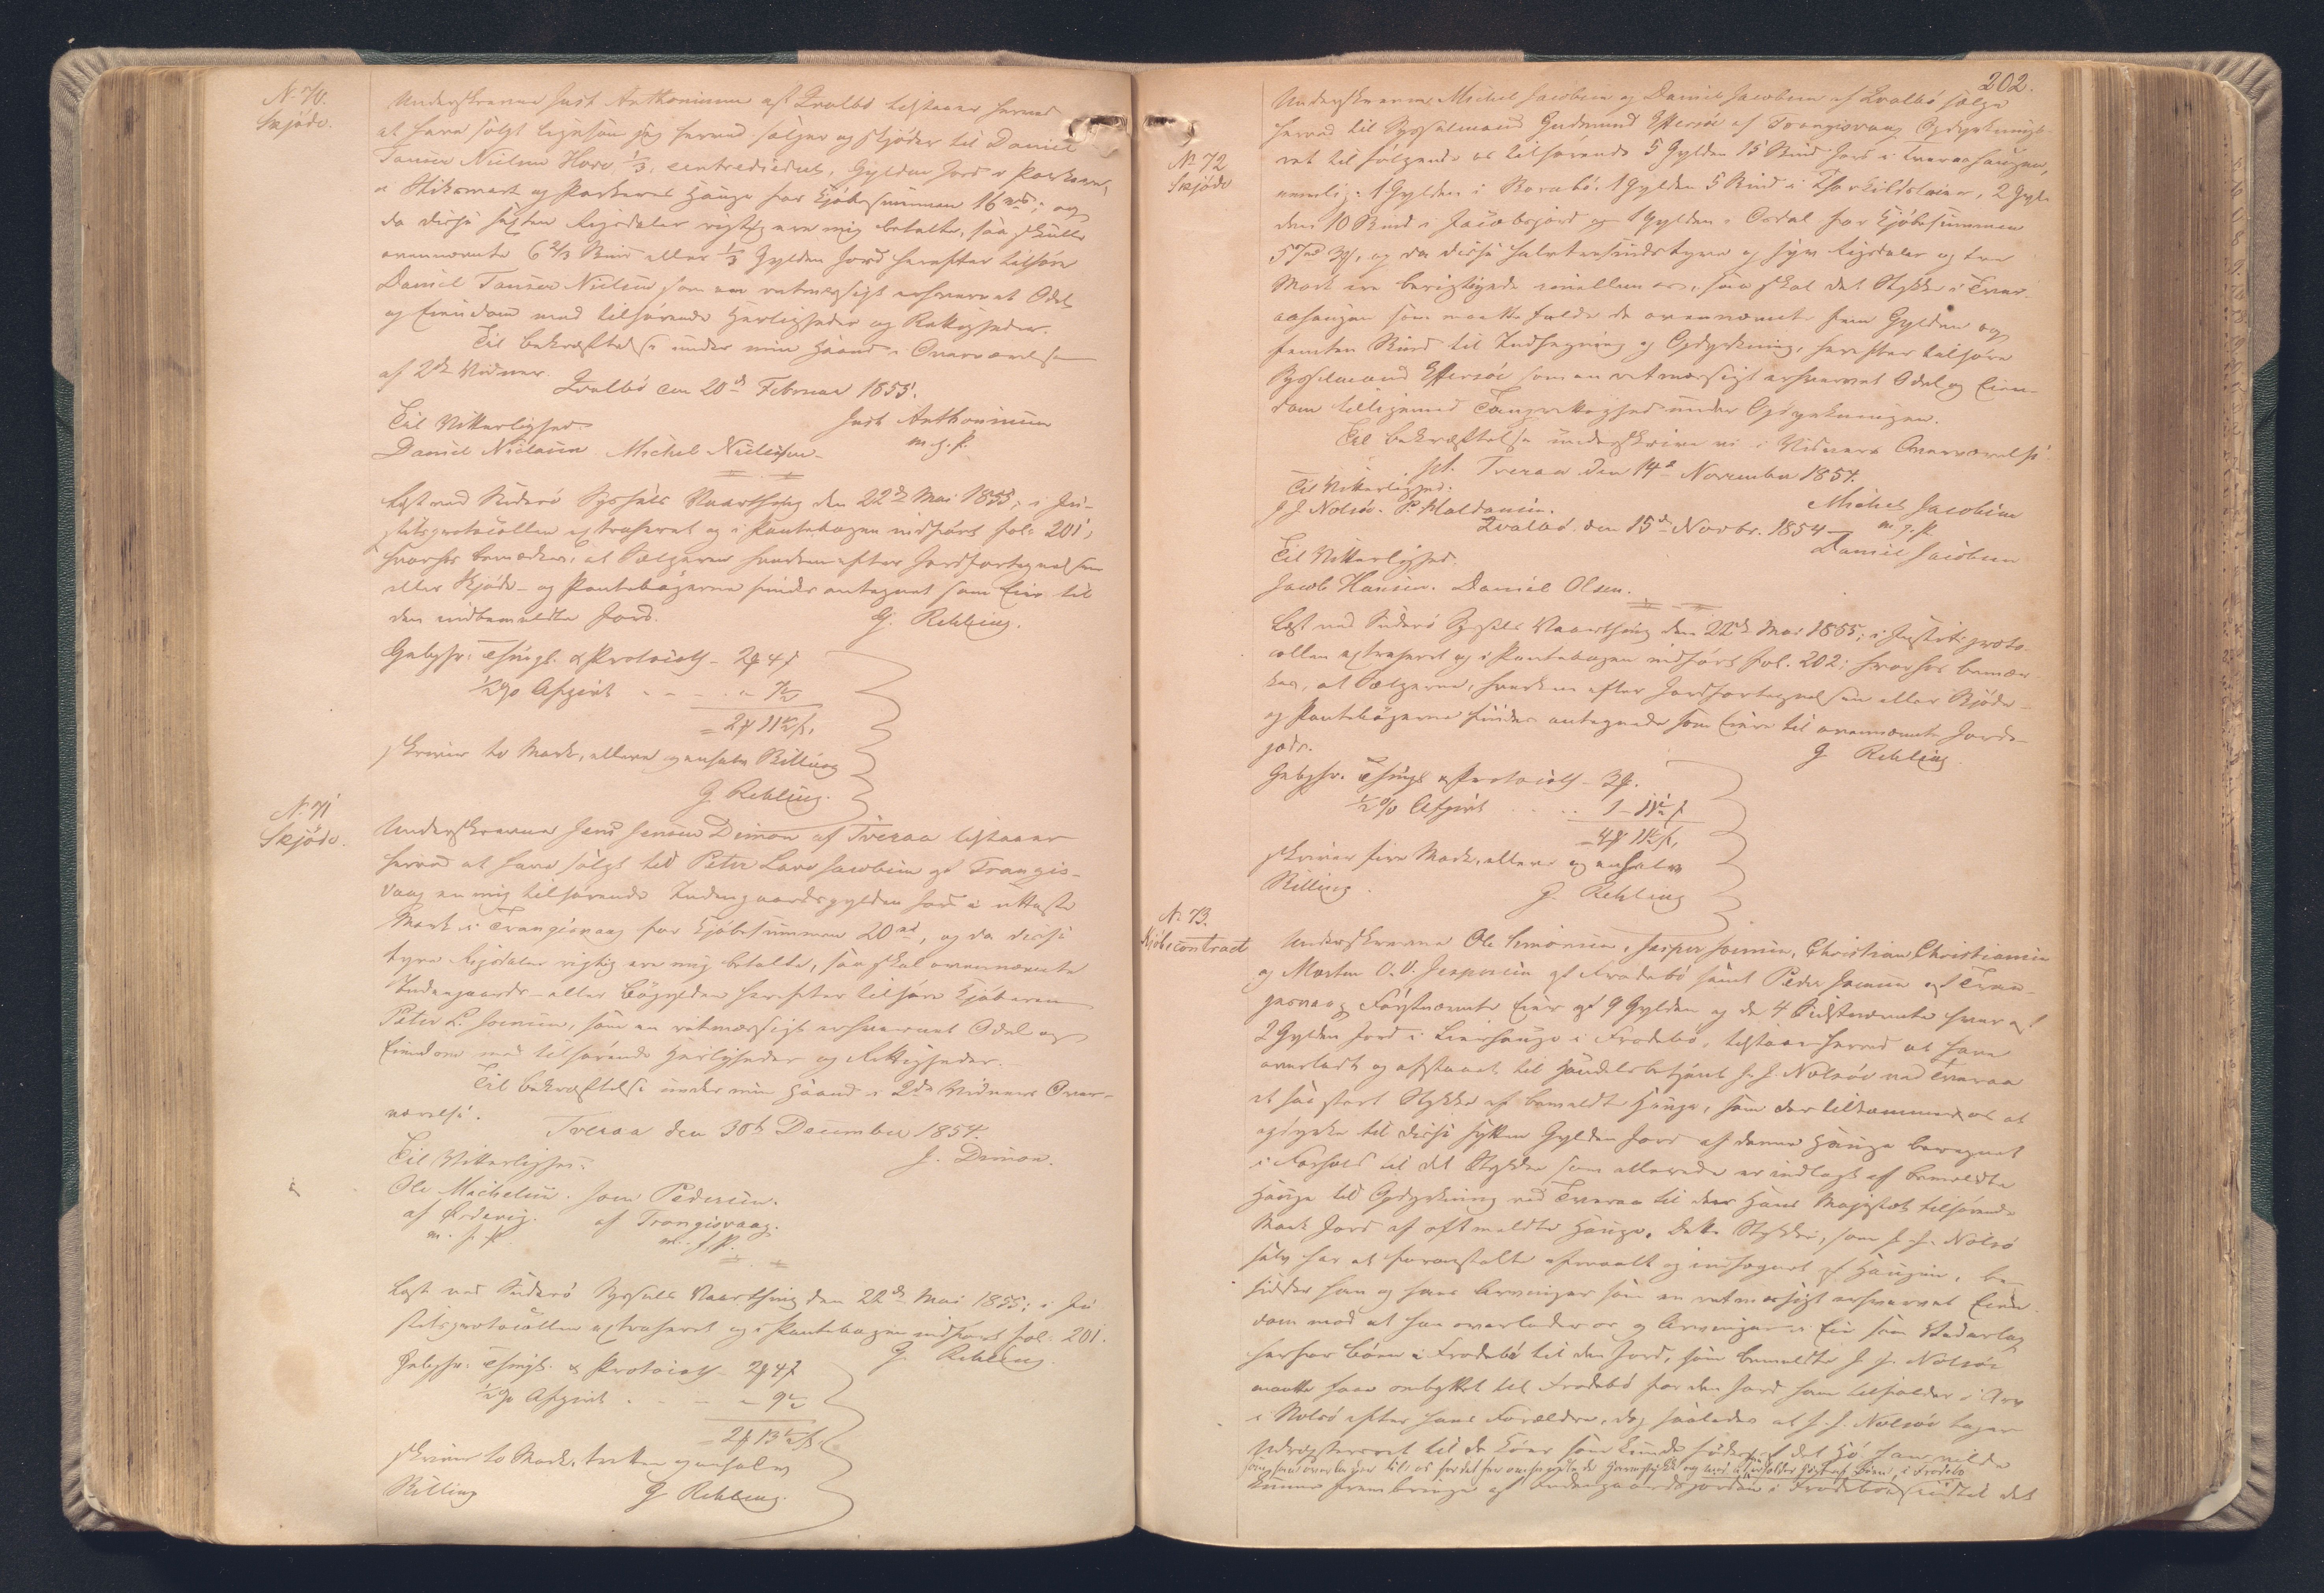 N. 70.
Skjöde.
Underskrevne Just Anthonisen af Qvalbö tilstaaer herved
at have solgt ligesom jeg herved sælger og skjöder til Daniel
Tausen Nielsen Hove 1/3, een trediedeel, Gylden Jord i
og Parkens Hauge for Kjöbesummen 16 rd; og
da disse sexten Rigsdaler rigtig ere mig betalte, saa skulle
ovennævnte 6 2/3 Skind eller 1/3 Gylden Jord herefter tilhöre
Daniel Tausen Nielsen som en retmæssigt erhvervet Odel
og Eiendom med tilhörende Herligheder og Rettigheder.
Til Bekræftelse under min Haand i Overværelse
af 2de Vidner.
Qvalbö den 20de Februar 1855.
Til Vitterlighed.
Just Anthonisen
m. f. P.
Daniel Nielsen Michel Nielsen
Læst ved Suderö Syssels Vaarthing den 22de Mai 1855; i Ju-
stitsprotocollen extraheret og i Pantebogen indfört fol. 201;
hvorhos bemærkes, at Sælgeren hverken efter Jordfortegnelsen
eller Skjöde- og Pantebögerne findes antegnet som Eier til
den indbemeldte Jord.
G. Rehling.
Gebyhr: Thingl. & Protocoll - 2 ℳ 4 ß
1/2 % Afgivt - - - " 7 1/2
= 2 ℳ 11 1/2 ß.
skriver to Mark, elleve og en halv Skilling
G Rehling.
N. 71
Skjöde.
Underskrevne Jens Jensen Dimon af Tveraa tilstaaer
herved at have solgt til Peter Lave Jacobsen af Trangis-
vaag en mig tilhörende Indengaardsgylden Jord i
Mark i Trangisvaag for Kjöbesummen 20 rd, og da disse
tyve Rigsdaler rigtig ere mig betalte, saa skal ovennævnte
Indengaards- eller Böegylden herefter tilhöre Kjöberen
Peter L. Joensen, som en retmæssigt erhvervet Odel og
Eiendom med tilhörende Herligheder og Rettigheder.
Til Bekræftelse under min Haand i 2de Vidners Over-
værelse.
Tveraa den 30te December 1854.
Til Vitterlighed.
J. Dimon.
Ole Michelsen. Joen Pedersen.
af af Trangisvaag.
m. f. P. m. f. P.
Læst ved Suderö Syssels Vaarthing den 22de Mai 1855; i Ju-
stitsprotocollen extraheret og i Pantebogen indfört fol. 201.
G. Rehling.
Gebyhr: Thingl. & Protocoll - 2 ℳ 4 ß
1/2 % Afgivt - - - " 9 1/2
= 2 ℳ 13 1/2 ß
skriver to Mark, tretten og en halv
Skilling
G Rehling.
202.
N. 72
Skjöde
Underskrevne Michel Jacobsen og Daniel Jacobsen af Qvalbö sælge
herved til Sysselmand Gudmund Effersöe af Trangisvaag Opdyrknings-
ret til fölgende os tilhörende 5 Gylden 15 Skind Jord i Tveraahaugen,
nemlig: 1 Gylden i 1 Gylden 5 Skind i 2 Gyl-
den 10 Skind i Jacobsjord og 1 Gylden i Ordal for Kjöbesummen
57 rd 3 ℳ, og da disse halvtredsindstyve og syv Rigsdaler og tre
Mark ere berigtigede imellem os, saa skal det Stykke i Tver-
aahaugen som maatte falde de ovennævnte fem Gylden og
femten Skind til Indhegning og Opdyrkning, herefter tilhöre
Sysselmand Effersöe som en retmæssigt erhvervet Odel og Eien-
dom tilligemed Tangrettighed under Opdyrkningen.
Til Bekræftelse underskrive vi i Vidners Overværelse
pt. Tveraa den 14de November 1854.
Til Vitterlighed.
J J Nolsöe. P. Mortensen.
Michel Jacobsen
m. f. P.
Qvalbö den 15de Novbr. 1854
Daniel Jacobsen
Til Vitterlighed.
Jacob Hansen. Daniel Olsen.
Læst ved Suderö Syssels Vaarthing den 22de Mai 1855; i Justitsproto-
collen extraheret og i Pantebogen indfört fol. 202; hvorhos bemær-
kes, at Sælgerne, hverken efter Jordfortegnelsen eller Skjöde-
og Pantebögerne findes antegnede som Eiere til ovennævnte Jorde-
gods.
G Rehling.
Gebyhr. Thingl & Protocoll - 3 ℳ.
1/2 % Afgivt - - 1 - 11 1/2 ß
= 4 ℳ 11 1/2 ß.
skriver fire Mark, elleve og en halv
Skilling.
G. Rehling
N. 73.
Kjöbecontract
Underskrevne Ole Simonsen, Jesper Joensen, Christian Christiansen
og Morten O. V. Jespersen af Frodebö samt Peder Joensen af Tran-
gisvaag, Förstnævnte Eier af 9 Gylden og de 4 Sidstnævnte hver af
2 Gylden Jord i Lierhauge i Frodebö, tilstaae herved at have
overladt og afstaaet til Handelsbetjent J. J. Nolsöe ved Tveraa
et saa stort Stykke af bemeldte Hauge, som der tilkommer os at
opdyrke til disse sytten Gylden Jord af denne Hauge beregnet
i Forhold til det Stykke som allerede er indtaget af bemeldte
Hauge til Opdyrkning ved Tveraa til den Hans Majestæt tilhörende
Mark Jord af oftmeldte Hauge. Dette Stykke, som J. J. Nolsö
selv har at foranstalte afmaalt og indhegnet af Haugen, be-
sidder han og hans Arvinger som en retmæssigt erhvervet Eien-
dom mod at han overlader os og Arvinger i Eie som Vederlag
herfor Böen i Frodebö til den Jord, som bemeldte J. J. Nolsöe
maatte faae ombyttet til Frodebö for den Jord ham tilfalder i Arv
i Nolsö efter hans Forældre, dog saaledes at J. J. Nolsöe tager
til de Köer som kunde födes af det Hö han vilde
som han overlader til os for det her omhandlede Jordstykke og med
kunne frembringe af Indengaardsjorden i Frodebö